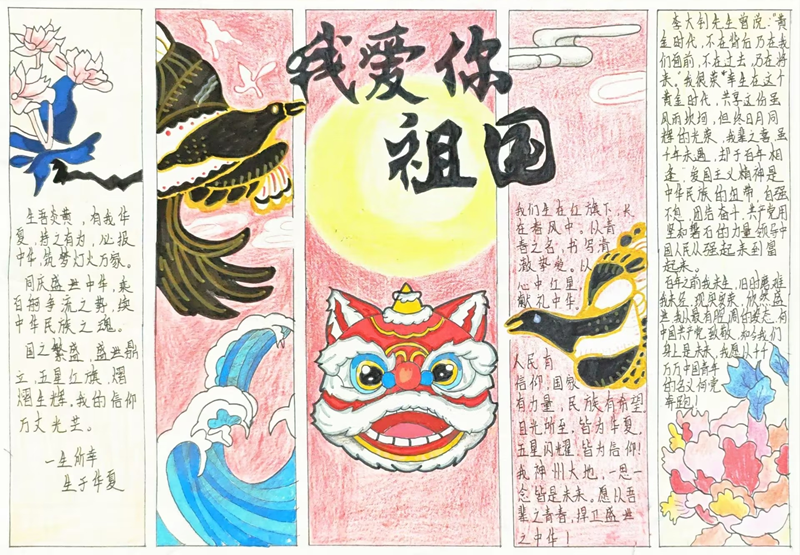 我爱你
祖国
生吾炎黄，育我华
夏，持之有为，必报
中华，筑梦灯火万家。
同庆盛世中华，乘
百舸争流之势，续
中华民族之魂。
国之繁盛，盛世鼎
立，五星红旗，熠
熠生辉，我的信仰
万丈光芒。
一生所幸
生于华夏
我们生在红旗下，长
在春风中。以青
春之名，书写清
澈挚爱。以
心中红星，
献礼中华。
人民有
信仰，国家
有力量，民族有希望
目光所至，皆为华夏，
五星闪耀，皆为信仰！
我神州大地，一思一
念皆是未来。愿以吾
辈之青春，捍卫盛世
之中华！
李大钊先生曾说："黄
金时代，不在背后，乃在我
们面前，不在过去，乃在将
来。"我很荣幸生在这个
黄金时代，共享这份虽
风雨坎坷，但终日月同
辉的光荣，我辈之喜，虽
十年未遇，却于百年相
逢，爱国主义精神是
中华民族的纽带，自强
不息，团结奋斗，共产党用
坚如磐石的力量，领导中
国人民从强起来到富
起来。
百年之前我未生，旧时磨难
我未经，现泉安来，欣然盛
世，我以最有腔调的姿态，向
中国共产党致敬，如今我们
身上是未来，我愿以千千
万万中国青年
的名义向党
奔跑！